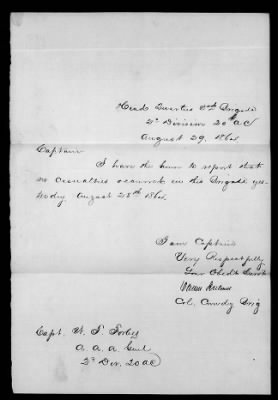 Head Quarters 3rd Brigade
2d Division 20th AC
August 29. 1864.
Captain
I have the honor to report that
no casualties occurred in this Brigade yes-
terday August 28th 1864.
I am Captain
Very Respectfully
Your Obedt Servt
Col. Comdg Brig
Capt. W. T. Forbes
A. A. A. Genl
2d Div. 20 AC